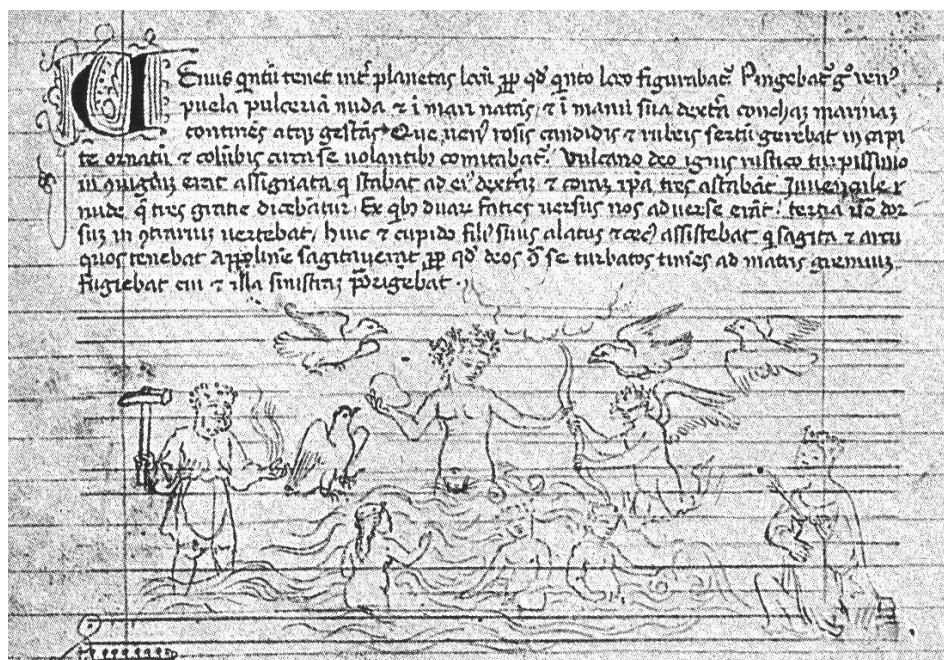 VEnus qntū tenet int̄ planetas locū, ꝓp̄ qd̄ qͥnto loco figurabat᷑. Pingebat᷑ gͦ uenꝰ
puela pulcerīa nuda ⁊ ī mari natās, ⁊ ī manu sua dextr̄a conchaꝫ marinaꝫ
continēs atqꝫ gestās. Que uenꝰ rosis candidis ⁊ rubeis sertū gerebat in capi
te ornatū, ⁊ colūbis circa se uolantibꝫ comitabat᷑. Vulcano deo ignis rustico turpissimo
in ꝯiugiū erat assignata q stabat ad eiꝰ dextraꝫ ⁊ coraꝫ ip̄a tres astabāt Iuuencule
nude, q̄ tres gratie dicebātur. Ex qͥbꝫ duaꝝ facies uersus nos aduerse erāt, tertia ṽo dor
suꝫ in ꝯtrariuꝫ uertebat, huic ⁊ cupido filiꝰ suus alatus ⁊ cecꝰ assistebat q sagita ⁊ arcu
quos tenebat Appoline᷑ sagitauerat, ꝓp̄ qd̄ deos ꝯ̄ se turbatos timēs ad matris gremiuꝫ
fugiebat cui ⁊ illa sinistraꝫ porigebat.